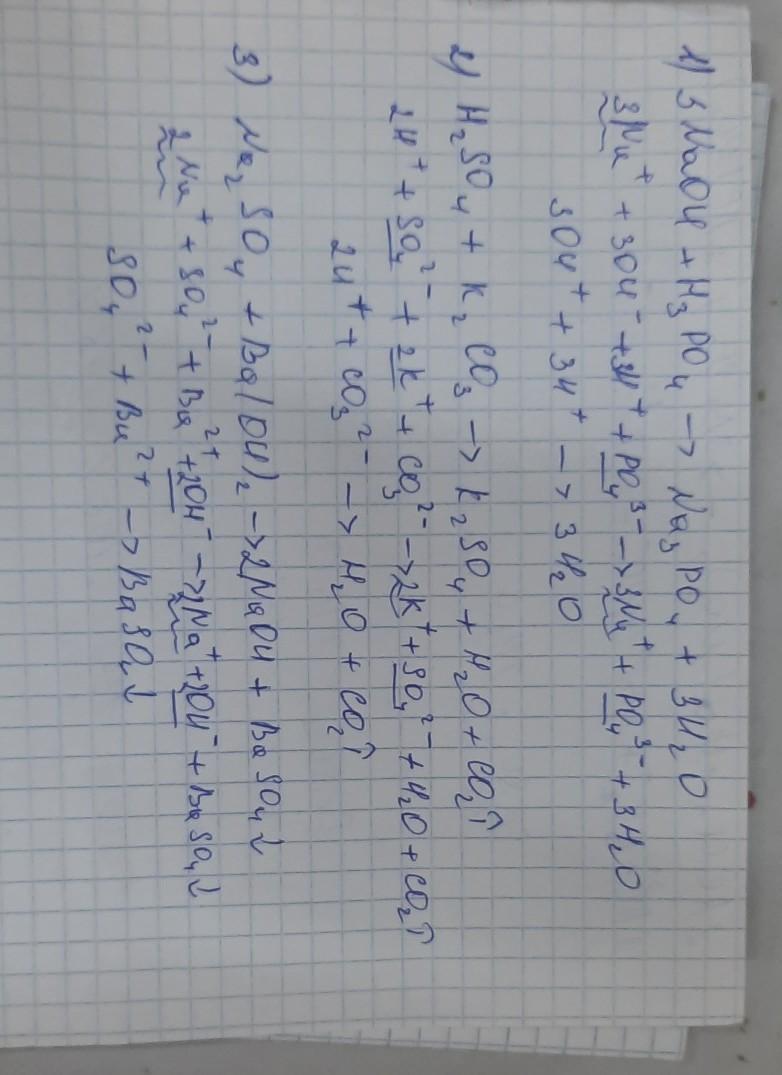 1) 3NaOH + H₃PO₄ → Na₃PO₄ + 3H₂O
3Na⁺ + 3OH⁻ + 3H⁺ + PO₄³⁻ → 3Na⁺ + PO₄³⁻ + 3H₂O
3OH⁺ + 3H⁺ → 3H₂O
2) H₂SO₄ + K₂CO₃ → K₂SO₄ + H₂O + CO₂↑
2H⁺ + SO₄²⁻ + 2K⁺ + CO₃²⁻ → 2K⁺ + SO₄²⁻ + H₂O + CO₂↑
2H⁺ + CO₃²⁻ → H₂O + CO₂↑
3) Na₂SO₄ + Ba(OH)₂ → 2NaOH + BaSO₄↓
2Na⁺ + SO₄²⁻ + Ba²⁺ + 2OH⁻ → 2Na⁺ + 2OH⁻ + BaSO₄↓
SO₄²⁻ + Ba²⁺ → BaSO₄↓